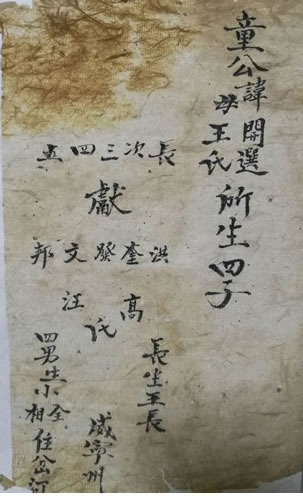 童公諱開選
母王氏
所生四子
長次三四五
獻
洪奎癸文邦
高氏汪
長生王長
威寧州
四男小全
相住岔河